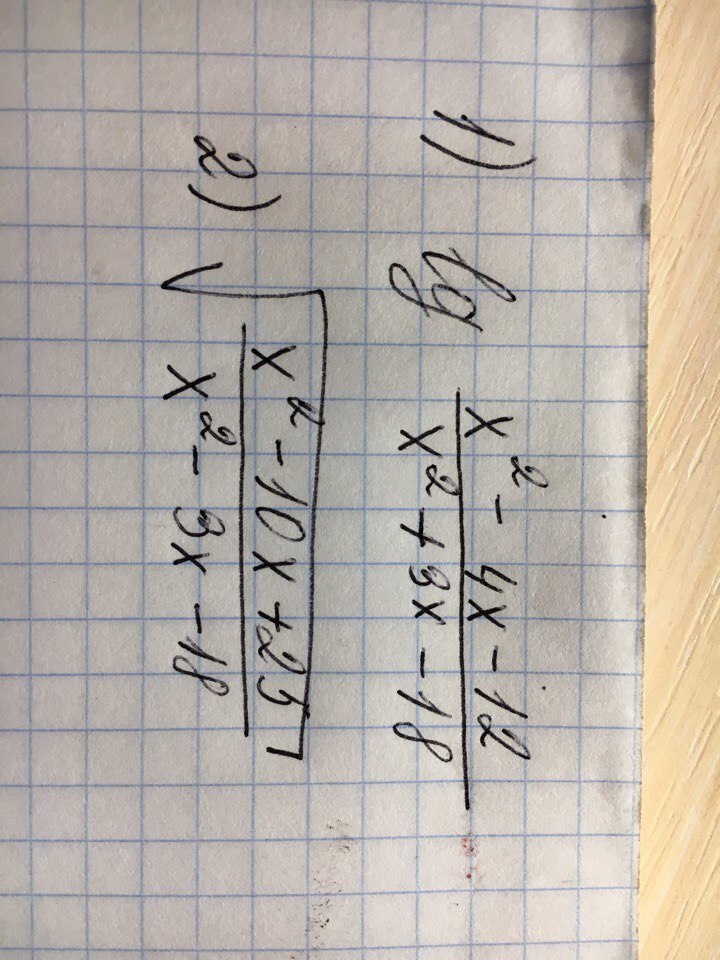 1) lg (x² - 4x - 12)/(x² + 3x - 18)
2) √((x² - 10x + 25)/(x² - 3x - 18))